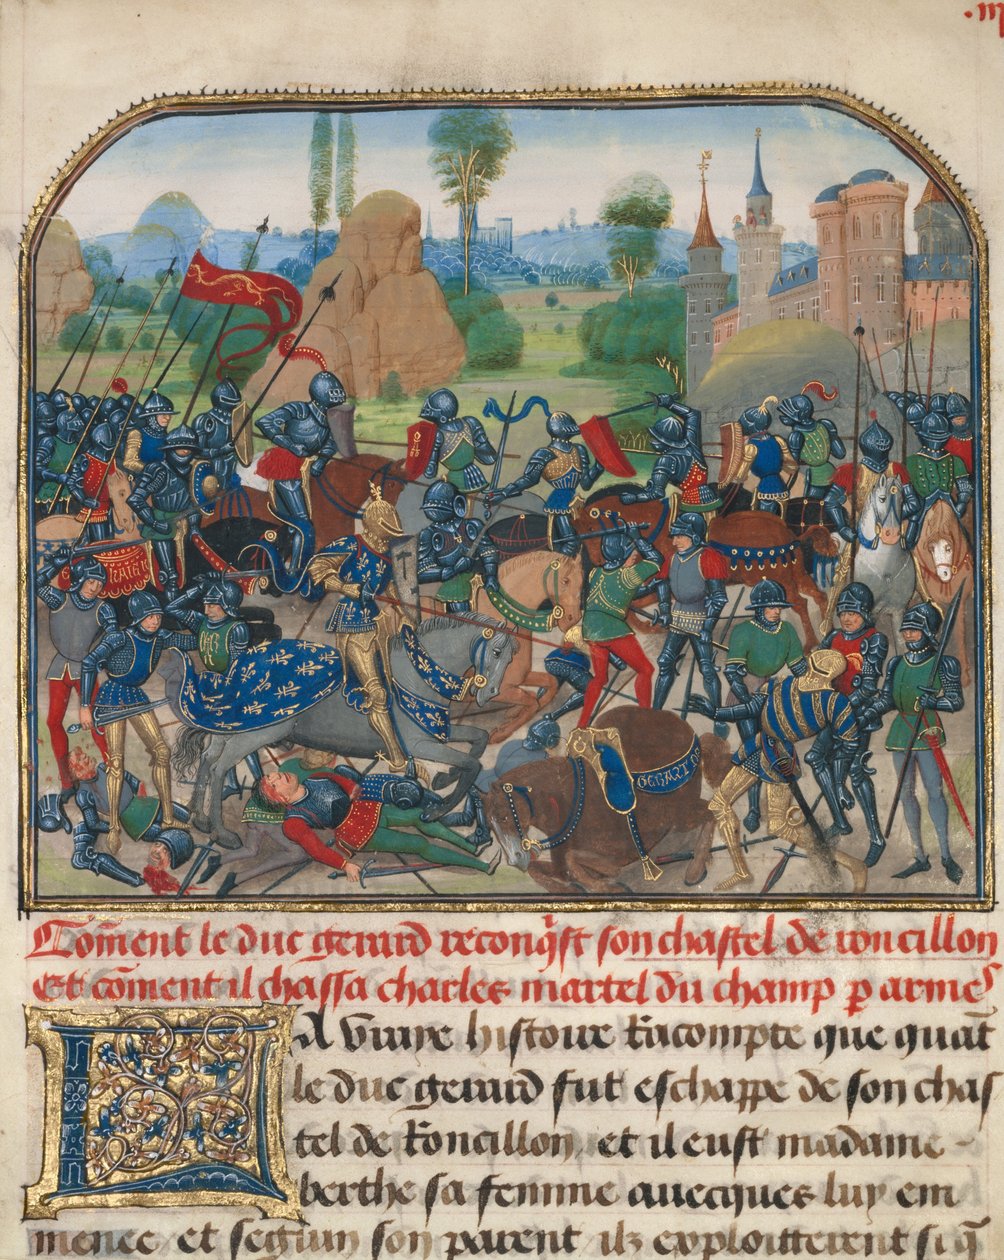 Com̄ent le duc gerard reconq̄st son chastel de roncillon
Et com̄ent il chassa charles martel du champ p̱ armes
La vraye histoire Racompte que quāt
le duc gerard fut eschappe de son chas
tel de Roncillon, et il eust madame
berthe sa femme auecques luy em
menee et seguin son parent ilz exploitterent si q̄